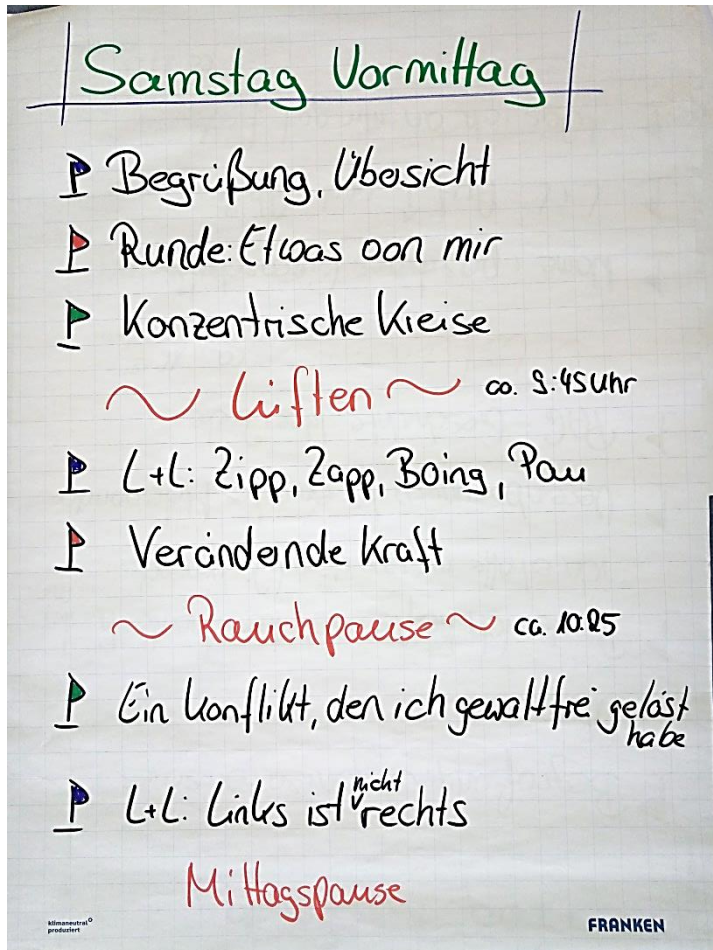 Samstag Vormittag
Begrüßung, Übersicht
Runde: Etwas von mir
Konzentrische Kreise
~ Lüften ~ ca. 9:45 Uhr
L+L: Zipp, Zapp, Boing, Pau
Verändernde Kraft
~ Rauchpause ~ ca. 10:25
Ein Konflikt, den ich gewaltfrei gelöst
habe
L+L: Links ist nicht rechts
Mittagspause
klimaneutral
produziert
FRANKEN